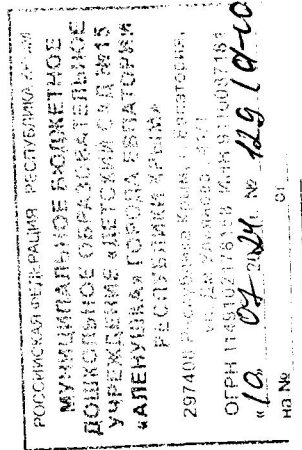 РОССИЙСКАЯ ФЕДЕРАЦИЯ РЕСПУБЛИКА КРЫМ
МУНИЦИПАЛЬНОЕ БЮДЖЕТНОЕ
ДОШКОЛЬНОЕ ОБРАЗОВАТЕЛЬНОЕ
УЧРЕЖДЕНИЕ «ДЕТСКИЙ САД №15
«АЛЕНУШКА» ГОРОДА ЕВПАТОРИИ
РЕСПУБЛИКИ КРЫМ»
297408 Республика Крым, г. Евпатория,
ул. Дм. Ульянова
ОГРН ИНН
«10» 07 2024 № 129/01-10
на № от